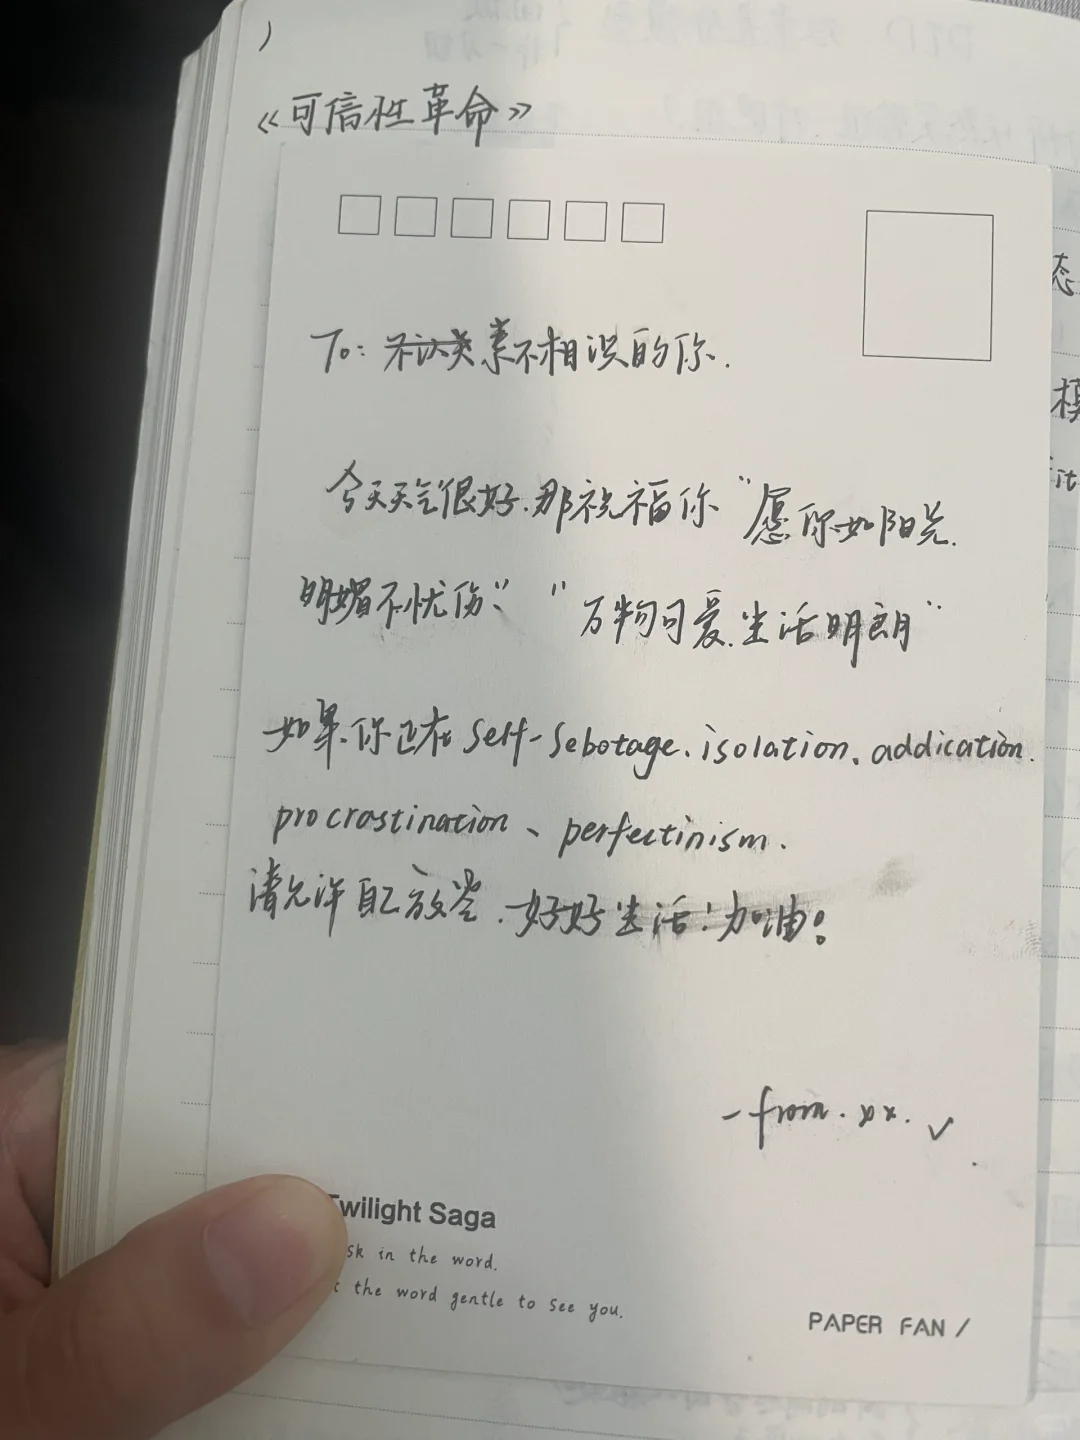 《可信性革命》
To: 不认类素不相识的你.
今天天气很好.那祝福你“愿你如阳光.
明媚不忧伤”“万物可爱.生活明朗”
如果你正在 self-sebotage、isolation、addication.
procrastination、perfectinism.
请允许自己放空.好好生活!加油!
-from. xx. ✓
Twilight Saga
in the word.
the word gentle to see you.
PAPER FAN /
态
模
it